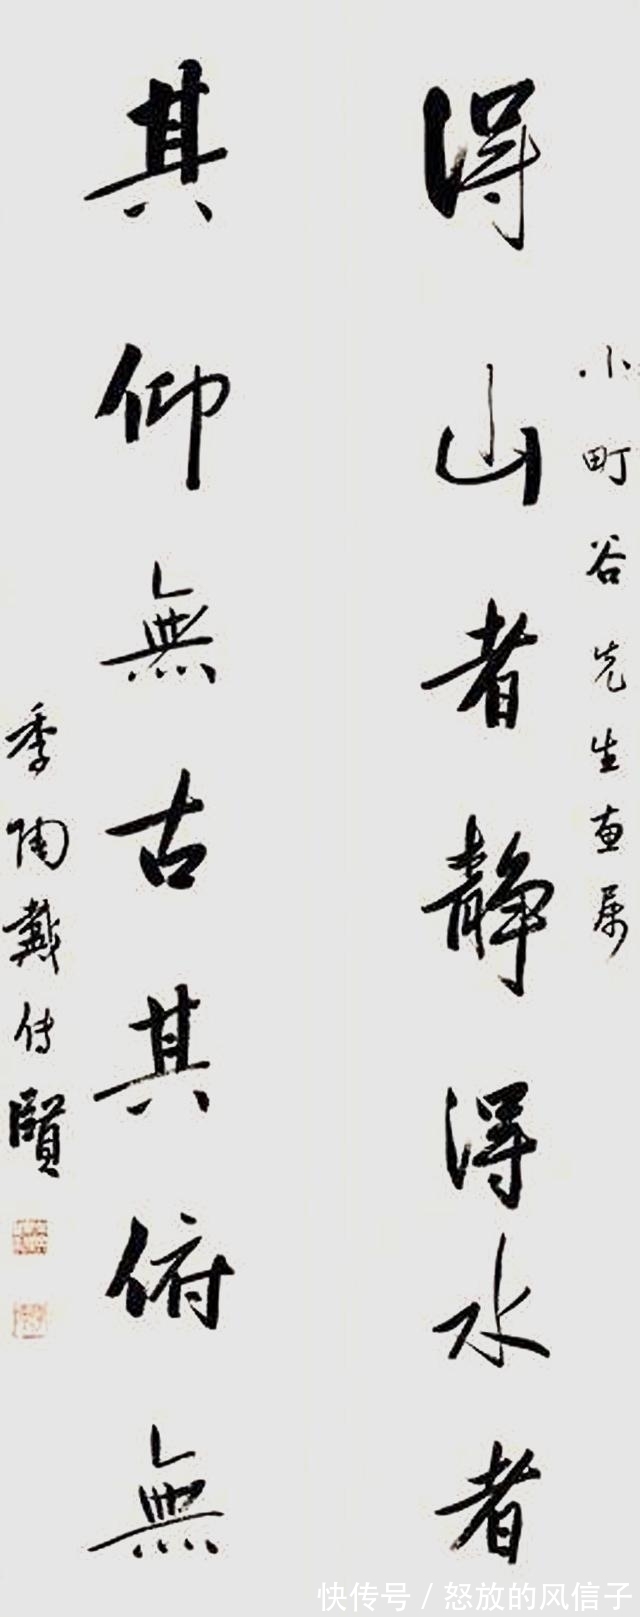 小町谷先生直属
得山者静得水者
其仰無古其俯無
季陶戴传賢
快传号 / 怒放的风信子